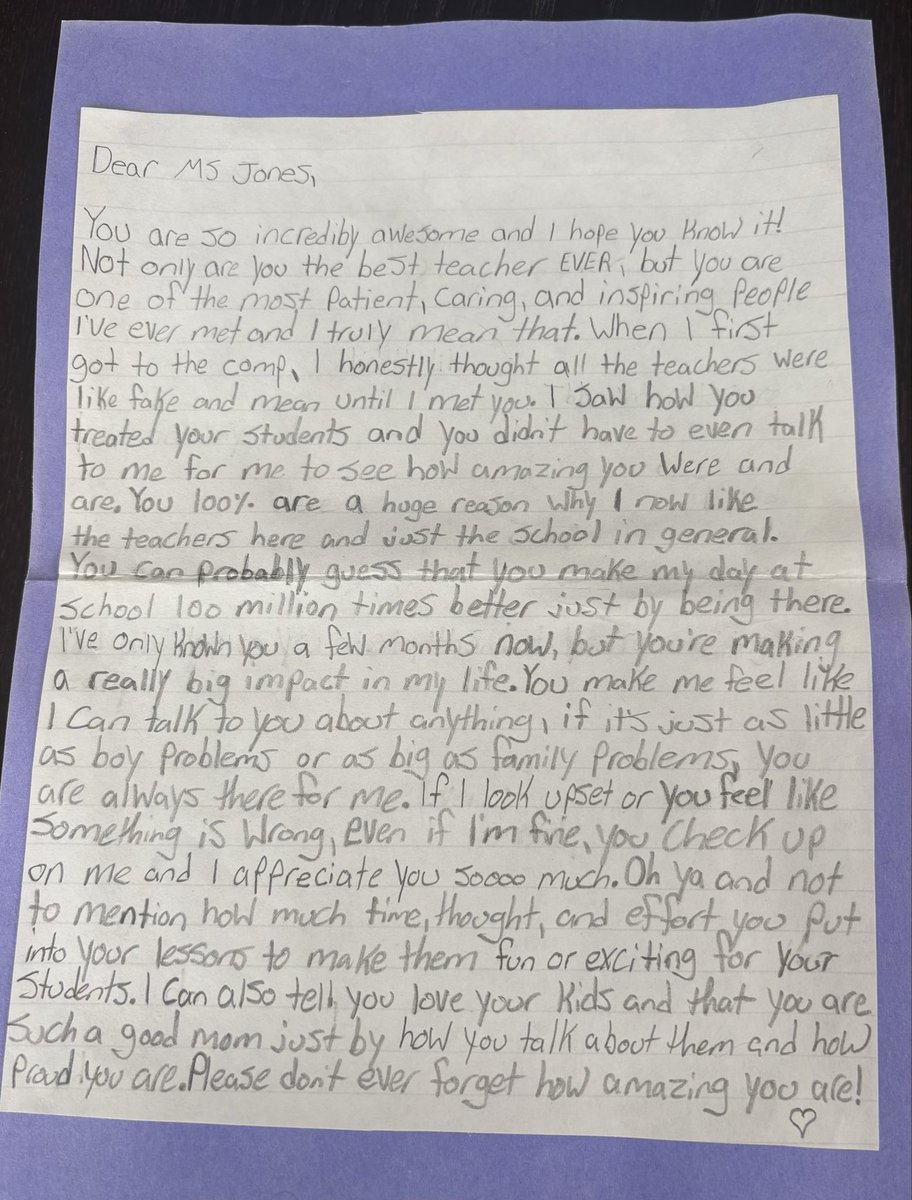 Dear Ms Jones,
You are so incrediby awesome and I hope you know it!
Not only are you the best teacher EVER, but you are
one of the most patient, caring, and inspiring people
I've ever met and I truly mean that. When I first
got to the comp, I honestly thought all the teachers were
like fake and mean until I met you. I saw how you
treated your students and you didn't have to even talk
to me for me to see how amazing you were and
are. You 100% are a huge reason why I now like
the teachers here and just the school in general.
You can probably guess that you make my day at
school 100 million times better just by being there.
I've only known you a few months now, but you're making
a really big impact in my life. You make me feel like
I can talk to you about anything, if it's just as little
as boy problems or as big as family problems, you
are always there for me. If I look upset or you feel like
something is wrong, even if I'm fine, you check up
on me and I appreciate you soooo much. Oh ya and not
to mention, how much time, thought, and effort you put
into your lessons to make them fun or exciting for your
students. I can also tell, you love your kids and that you are
such a good mom just by how you talk about them and how
proud you are. Please don't ever forget how amazing you are!
♡